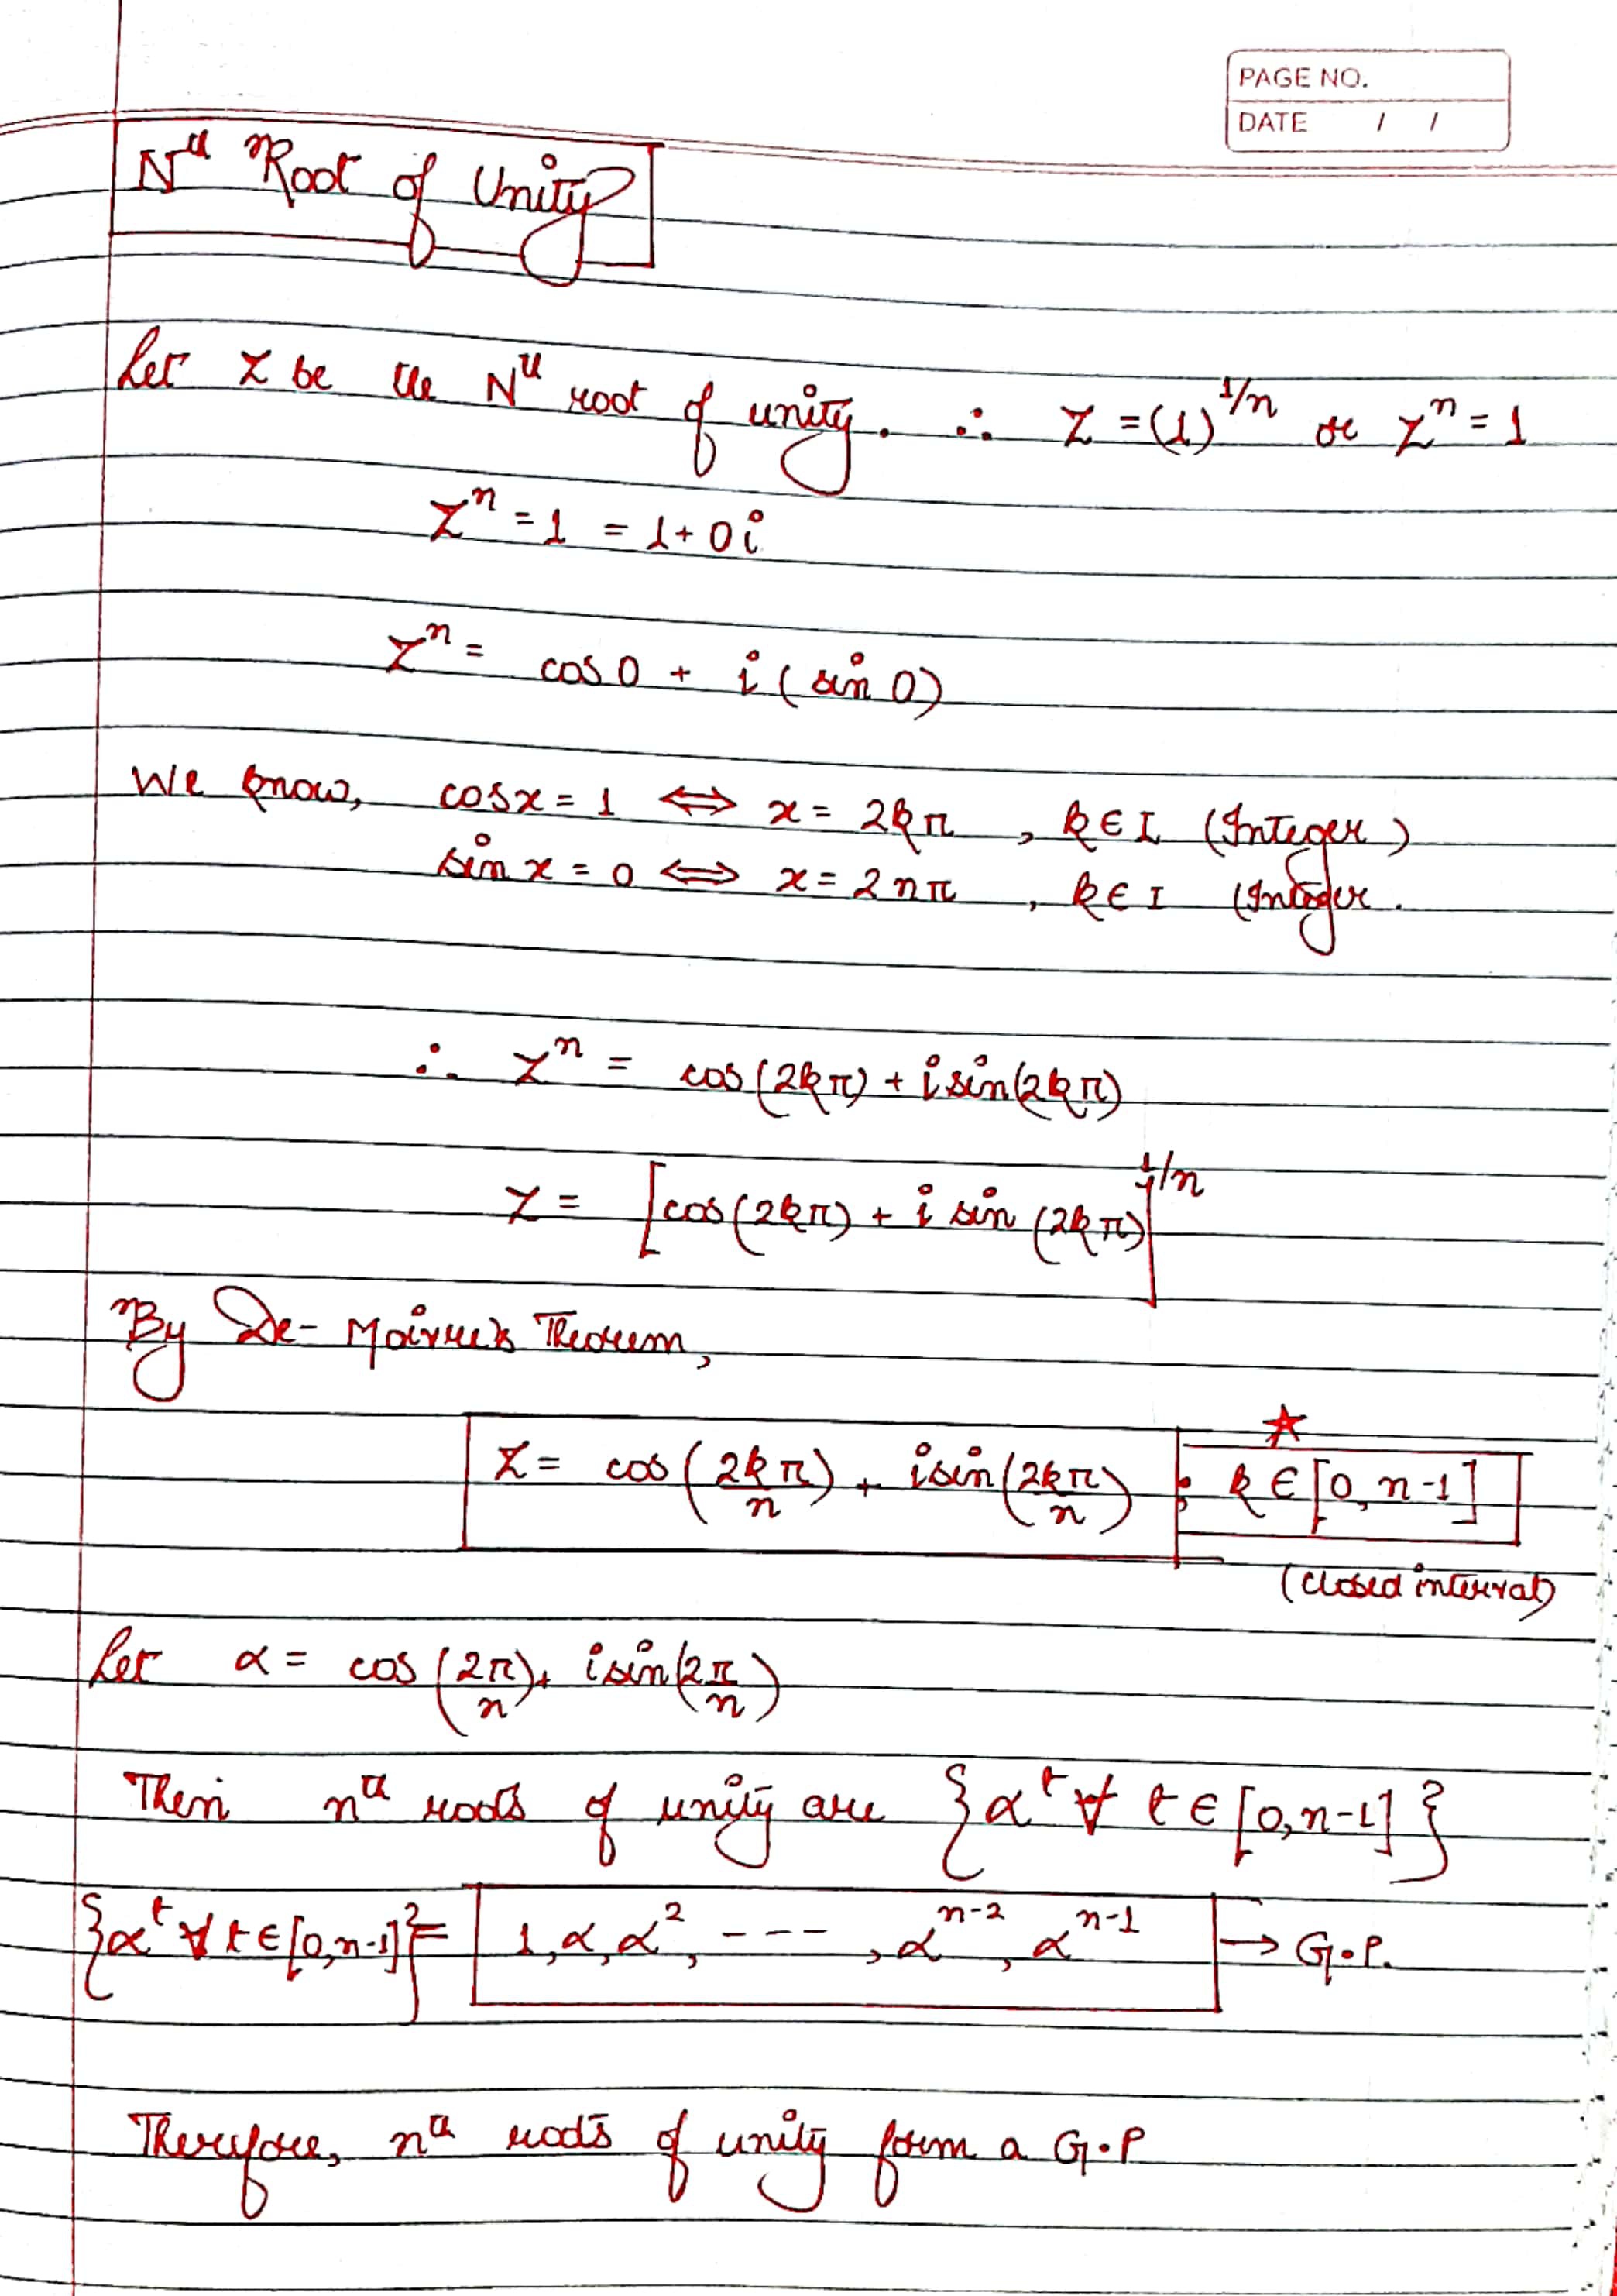 PAGE NO.
DATE / /
Nth Root of Unity
Let Z be the Nth root of unity. ∴ Z = (1)^1/n or Z^n = 1
Z^n = 1 = 1 + 0i
Z^n = cos 0 + i (sin 0)
We know, cos x = 1 ⟺ x = 2kπ , k ∈ I (Integer)
sin x = 0 ⟺ x = 2nπ , k ∈ I (Integer.
∴ Z^n = cos(2kπ) + i sin(2kπ)
Z = [cos(2kπ) + i sin (2kπ)]^1/n
By De-Moivre's Theorem,
★
Z = cos(2kπ/n) + i sin(2kπ/n) ; k ∈ [0, n-1]
(closed interval)
Let α = cos(2π/n) + i sin(2π/n)
Then nth roots of unity are {α^t ∀ t ∈ [0, n-1]}
{α^t ∀ t ∈ [0, n-1]} = 1, α, α^2, ----, α^n-2, α^n-1 → G.P.
Therefore, nth roots of unity form a G.P